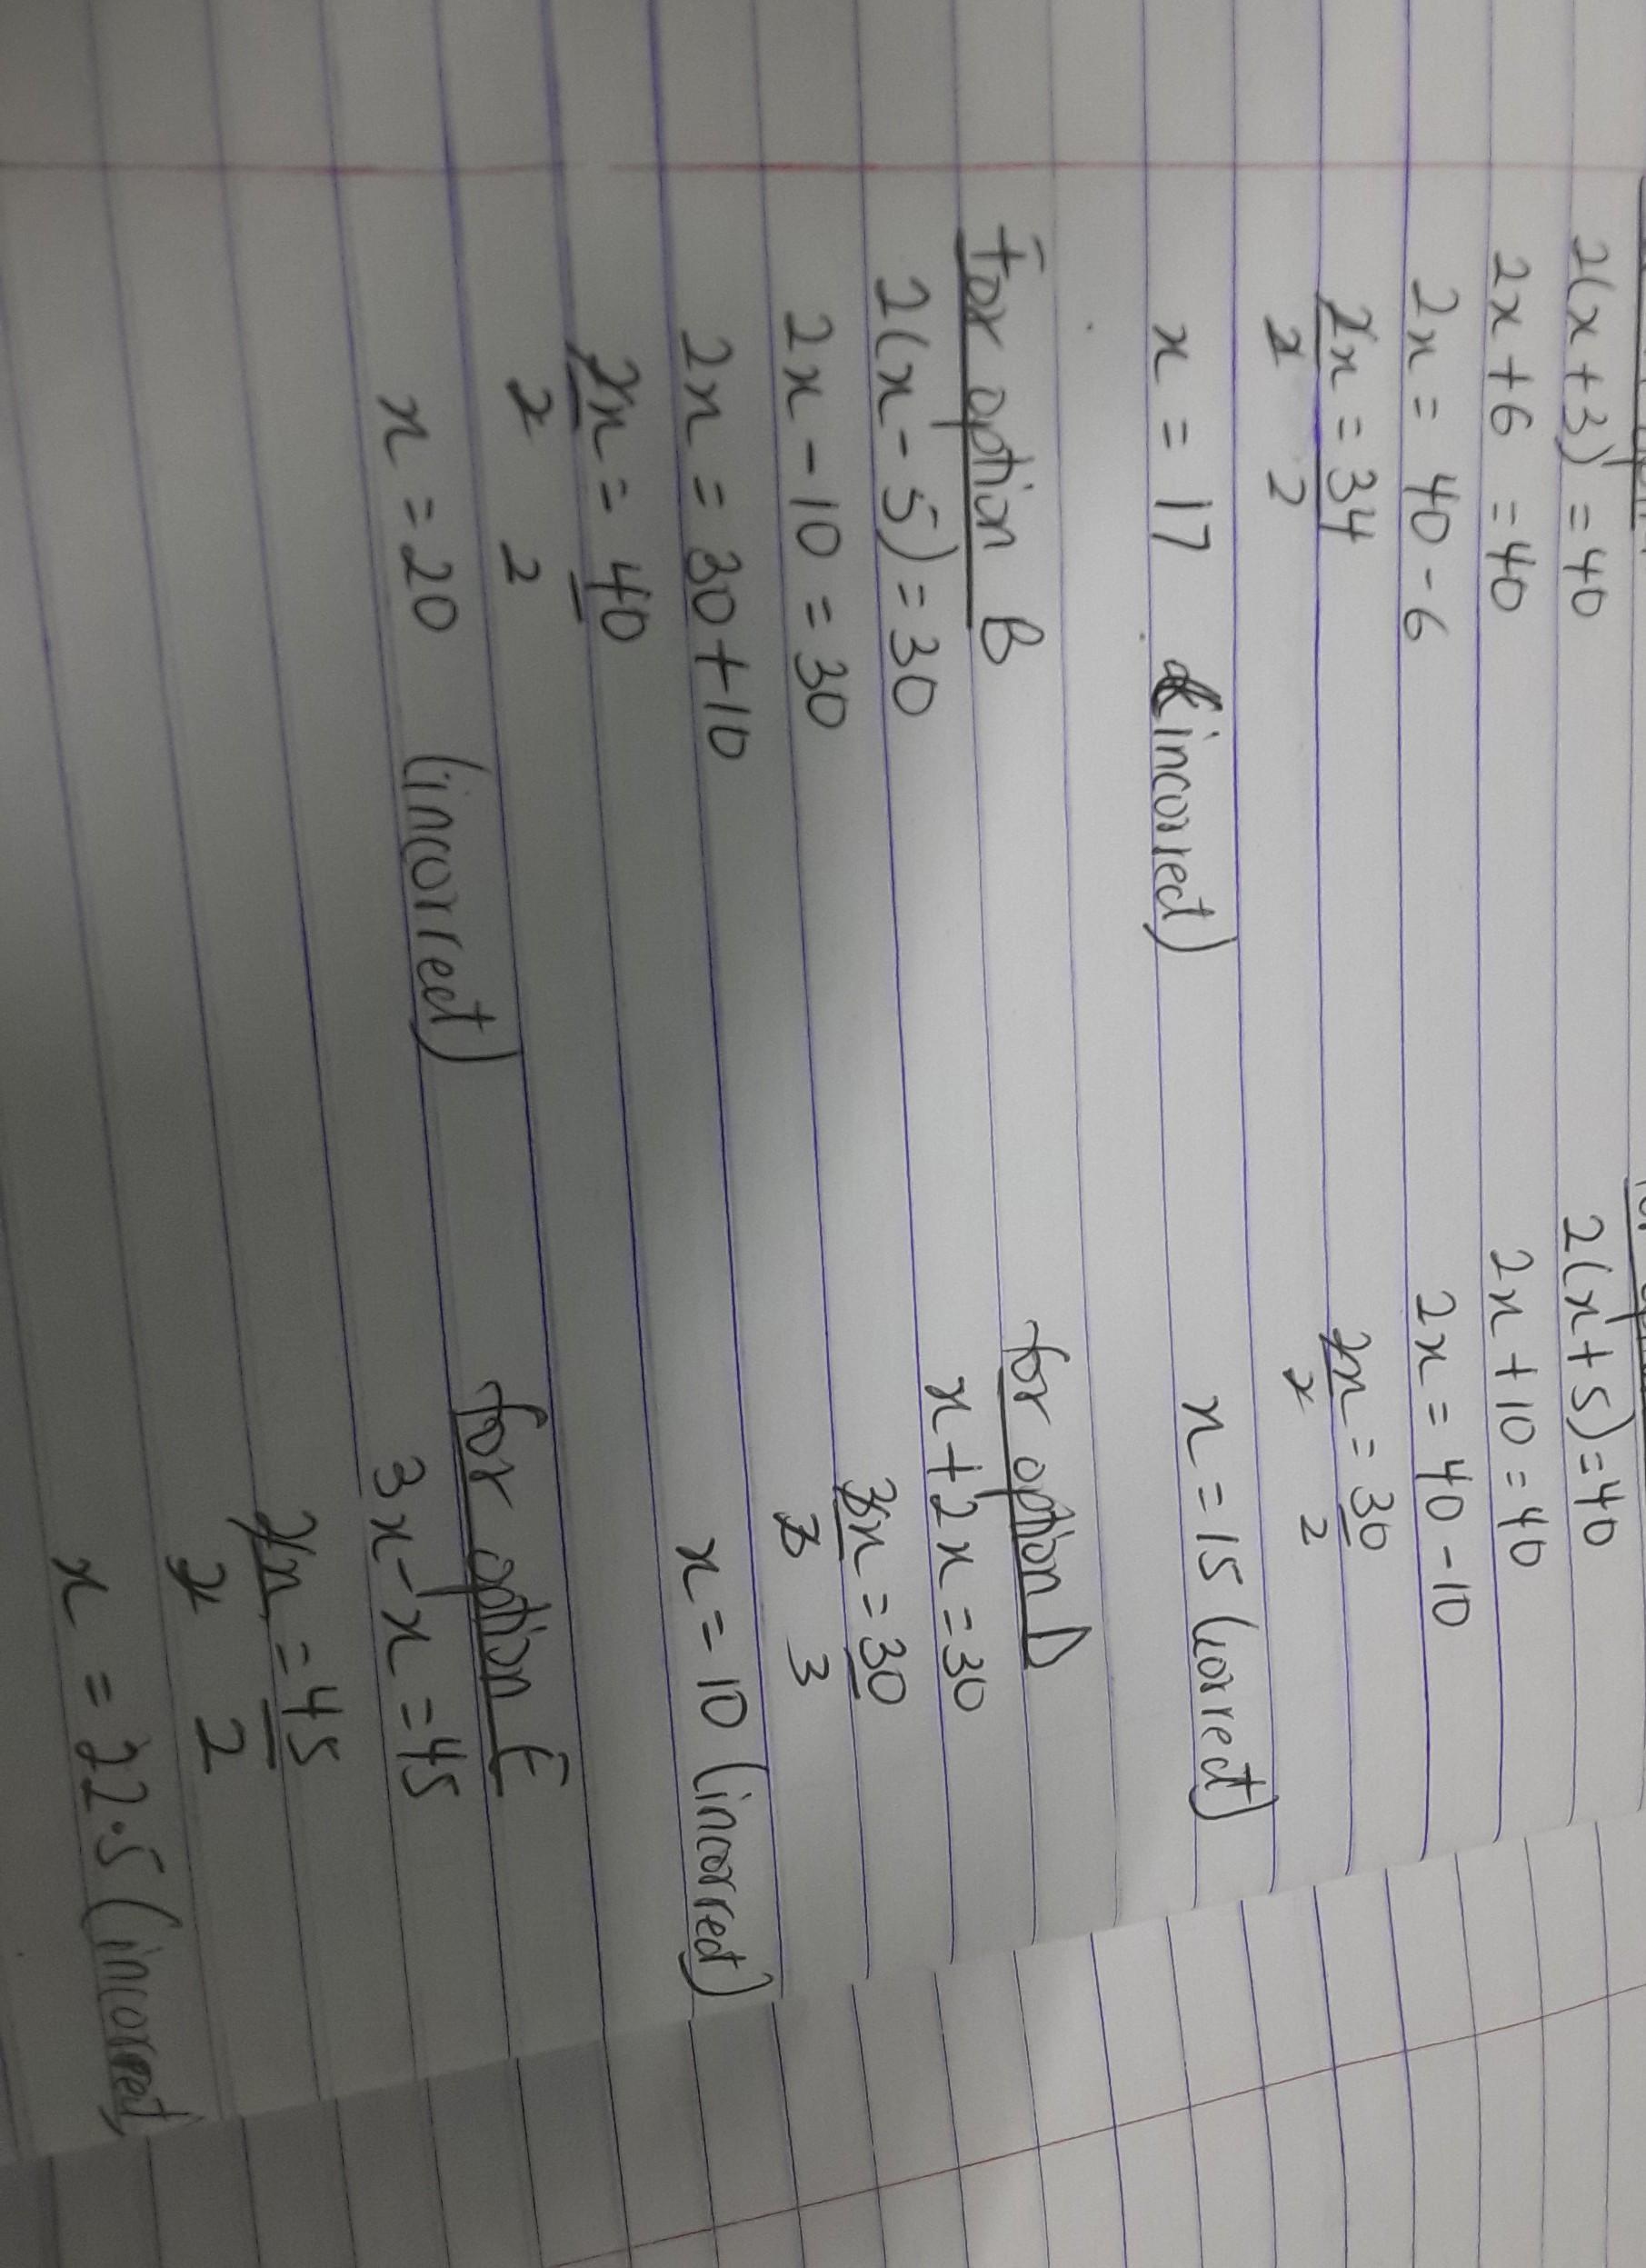 2(x+3) = 40
2x+6 = 40
2x = 40 - 6
2x = 34
2 2
x = 17 (incorrect)
For option B
2(x-5) = 30
2x - 10 = 30
2x = 30 + 10
2x = 40
2 2
x = 20 (incorrect)
2(x+5) = 40
2x + 10 = 40
2x = 40 - 10
2x = 30
2 2
x = 15 (correct)
for option D
x + 2x = 30
3x = 30
3 3
x = 10 (incorrect)
for option E
3x - x = 45
2x = 45
2 2
x = 22.5 (incorrect)